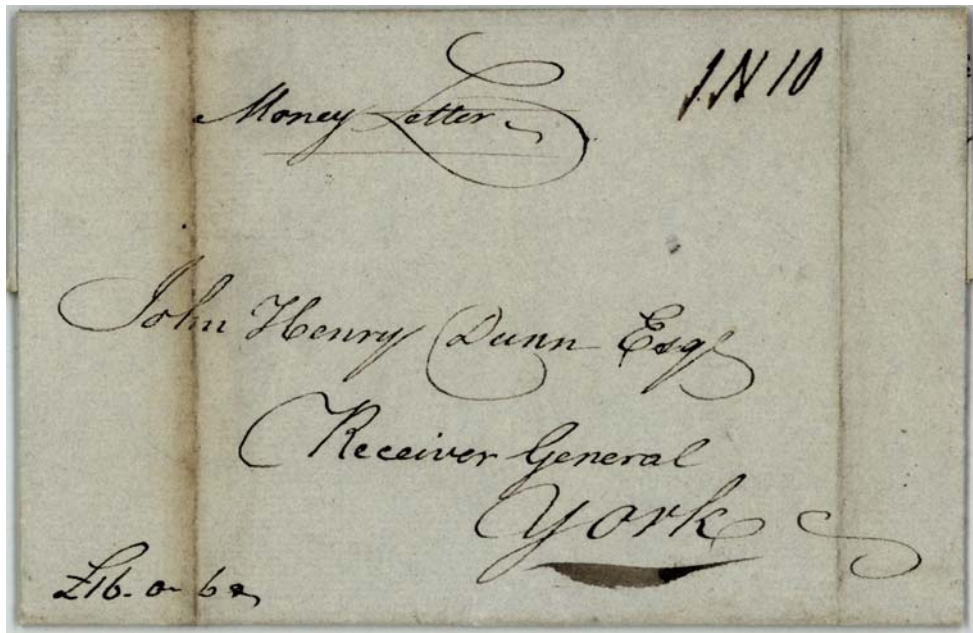 Money Letter
John Henry Dunn Esqr
Receiver General
York
£16. 0 6